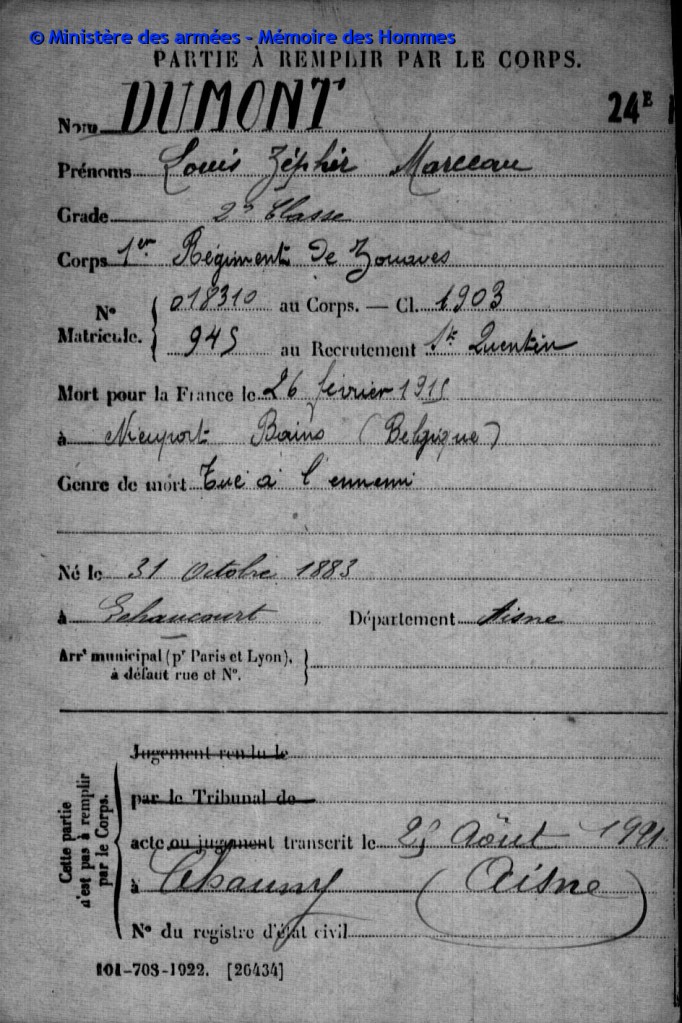 © Ministère des armées - Mémoire des Hommes
PARTIE À REMPLIR PAR LE CORPS.
Nom DUMONT 24E
Prénoms Louis Zéphir Marceau
Grade 2e Classe
Corps 1er Régiment de Zouaves
No Matricule. 018310 au Corps. — Cl. 1903
945 au Recrutement St Quentin
Mort pour la France le 26 février 1915
à Nieuport Bains (Belgique)
Genre de mort Tué à l'ennemi
Né le 31 Octobre 1883
à Département Aisne
Arrt municipal (pr Paris et Lyon),
à défaut rue et No.
Cette partie
n'est pas à remplir
par le Corps.
Jugement rendu le
par le Tribunal de
acte ou jugement transcrit le Août
à Chauny (Aisne)
No du registre d'état civil
101-708-1922. [26434]